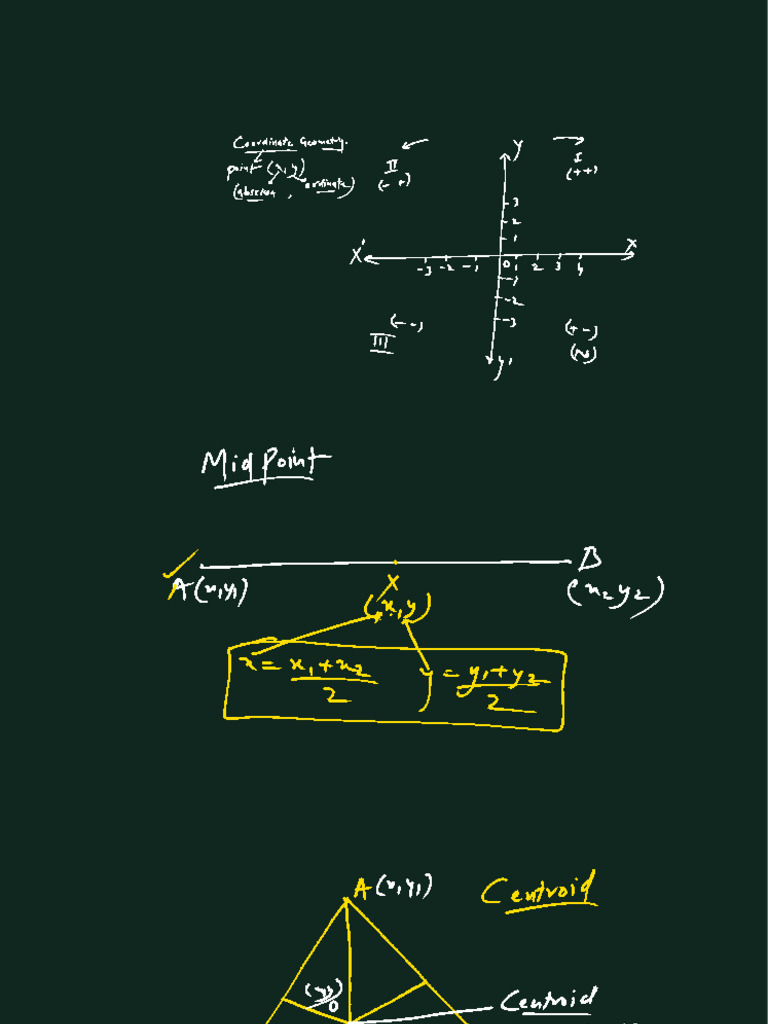 Coordinate Geometry.
point (x, y)
(abscissa, ordinate)
II
(- +)
Y
I
(+ +)
3
2
1
X' X
-3 -2 -1 0 1 2 3 4
-1
-2
-3
(- -)
III
(+ -)
(IV)
y'
Mid Point
A (x1 y1)
B
(x2 y2)
X
(x, y)
x = x1 + x2 / 2 y = y1 + y2 / 2
A (x1 y1)
Centroid
Centroid